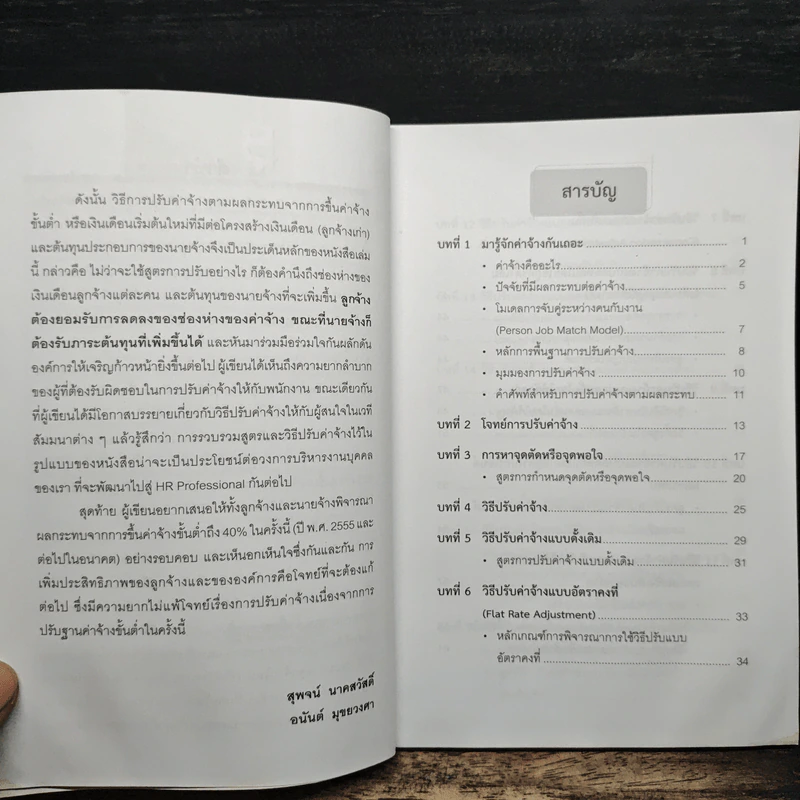 ดังนั้น วิธีการปรับค่าจ้างตามผลกระทบจากการขึ้นค่าจ้าง
ขั้นต่ำ หรือเงินเดือนเริ่มต้นใหม่ที่มีต่อโครงสร้างเงินเดือน (ลูกจ้างเก่า)
และต้นทุนประกอบการของนายจ้างจึงเป็นประเด็นหลักของหนังสือเล่ม
นี้ กล่าวคือ ไม่ว่าจะใช้สูตรการปรับอย่างไร ก็ต้องคำนึงถึงช่องห่างของ
เงินเดือนลูกจ้างแต่ละคน และต้นทุนของนายจ้างที่จะเพิ่มขึ้น ลูกจ้าง
ต้องยอมรับการลดลงของช่องห่างของค่าจ้าง ขณะที่นายจ้างก็
ต้องรับภาระต้นทุนที่เพิ่มขึ้นได้ และหันมาร่วมมือร่วมใจกันผลักดัน
องค์การให้เจริญก้าวหน้ายิ่งขึ้นต่อไป ผู้เขียนได้เห็นถึงความยากลำบาก
ของผู้ที่ต้องรับผิดชอบในการปรับค่าจ้างให้กับพนักงาน ขณะเดียวกัน
ที่ผู้เขียนได้มีโอกาสบรรยายเกี่ยวกับวิธีปรับค่าจ้างให้กับผู้สนใจในเวที
สัมมนาต่าง ๆ แล้วรู้สึกว่า การรวบรวมสูตรและวิธีปรับค่าจ้างไว้ใน
รูปแบบของหนังสือน่าจะเป็นประโยชน์ต่อวงการบริหารงานบุคคล
ของเรา ที่จะพัฒนาไปสู่ HR Professional กันต่อไป
สุดท้าย ผู้เขียนอยากเสนอให้ทั้งลูกจ้างและนายจ้างพิจารณา
ผลกระทบจากการขึ้นค่าจ้างขั้นต่ำถึง 40% ในครั้งนี้ (ปี พ.ศ. 2555 และ
ต่อไปในอนาคต) อย่างรอบคอบ และเห็นอกเห็นใจซึ่งกันและกัน การ
เพิ่มประสิทธิภาพของลูกจ้างและขององค์การคือโจทย์ที่จะต้องแก้
ต่อไป ซึ่งมีความยากไม่แพ้โจทย์เรื่องการปรับค่าจ้างเนื่องจากการ
ปรับฐานค่าจ้างขั้นต่ำในครั้งนี้
สุพจน์ นาคสวัสดิ์
อนันต์ มุขยวงศา
สารบัญ
บทที่ 1 มารู้จักค่าจ้างกันเถอะ ........ 1
• ค่าจ้างคืออะไร ........ 2
• ปัจจัยที่มีผลกระทบต่อค่าจ้าง ........ 5
• โมเดลการจับคู่ระหว่างคนกับงาน
(Person Job Match Model) ........ 7
• หลักการพื้นฐานการปรับค่าจ้าง ........ 8
• มุมมองการปรับค่าจ้าง ........ 10
• คำศัพท์สำหรับการปรับค่าจ้างตามผลกระทบ ........ 11
บทที่ 2 โจทย์การปรับค่าจ้าง ........ 13
บทที่ 3 การหาจุดตัดหรือจุดพอใจ ........ 17
• สูตรการกำหนดจุดตัดหรือจุดพอใจ ........ 20
บทที่ 4 วิธีปรับค่าจ้าง ........ 25
บทที่ 5 วิธีปรับค่าจ้างแบบดั้งเดิม ........ 29
• สูตรการปรับค่าจ้างแบบดั้งเดิม ........ 31
บทที่ 6 วิธีปรับค่าจ้างแบบอัตราคงที่
(Flat Rate Adjustment) ........ 33
• หลักเกณฑ์การพิจารณาการใช้วิธีปรับแบบ
อัตราคงที่ ........ 34